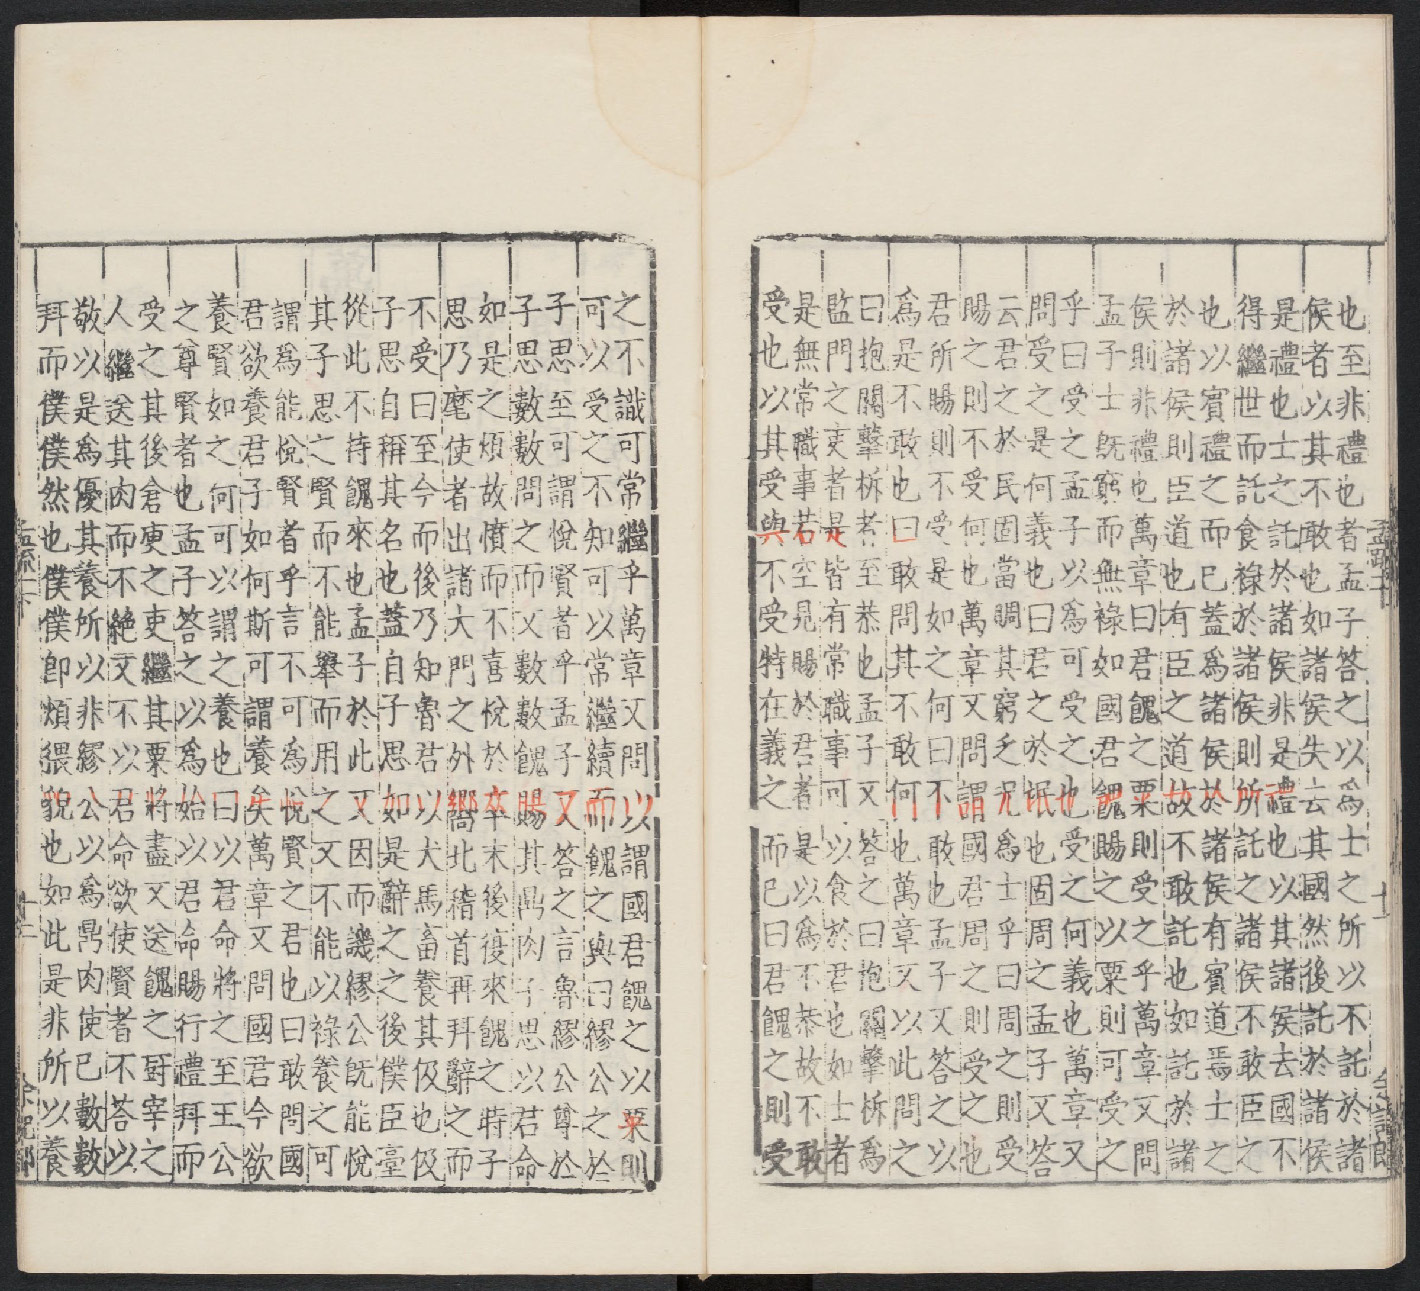 也至非禮也者孟子答之以爲士之所以不託於諸
侯者以其不敢也如諸侯失去其國然後託於諸侯
是禮也士之託於諸侯非是禮也以其諸侯去國不
得繼世而託食祿於諸侯則所託之諸侯不敢臣之
也以賓禮之而已蓋爲諸侯於諸侯有賓道焉士之
於諸侯則臣道也有臣之道故不敢託也如託於諸
侯則非禮也萬章曰君餽之粟則受之乎萬章又問
孟子士既窮而無祿如國君餽賜之以粟則可受之
乎曰受之孟子以爲可受之也受之何義也萬章又
問受之是何義也曰君之於氓也固周之孟子又答
云君之於民固當賙其窮乏況爲士乎曰周之則受
賜之則不受何也萬章又問謂國君周之則受之也
君所賜則不受是如之何曰不敢也孟子又答之以
爲是不敢也曰敢問其不敢何也萬章又以此問之
曰抱關擊柝者至恭也孟子又答之曰抱關擊柝爲
監門之吏者是皆有常職事可以食於君也如士者
是無常職事若空見賜於君者是以爲不恭故不敢
受也以其受與不受特在義之而已曰君餽之則受
之不識可常繼乎萬章又問以謂國君餽之以粟則
可以受之不知可以常繼續而餽之與曰繆公之於
子思至可謂悅賢者乎孟子又答之言魯繆公尊於
子思數數問之而又數數餽賜其鼎肉子思以君命
如是之煩故憤而不喜悅於卒末後復來餽之時子
思乃麾使者出諸大門之外嚮北稽首再拜辭之而
不受曰至今而後乃知魯君以犬馬畜養其伋也伋
子思自稱其名也蓋自子思如是辭之之後僕臣臺
從此不持餽來也孟子於此又因而譏繆公既能悅
其子思之賢而不能舉而用之又不能以祿養之可
謂爲能悅賢者乎言不可爲悅賢之君也曰敢問國
君欲養君子如何斯可謂養矣萬章又問國君今欲
養賢如之何可以謂之養也曰以君命將之至王公
之尊賢者也孟子答之以爲始以君命賜行禮拜而
受之其後倉吏之吏繼其粟將盡又送餽之厨宰之
人繼送其肉而不絶又不以君命欲使賢者不荅以
敬以是爲優其養所以非繆公以爲鼎肉使已數數
拜而僕僕然也僕僕卽煩猥貌也如此是非所以養